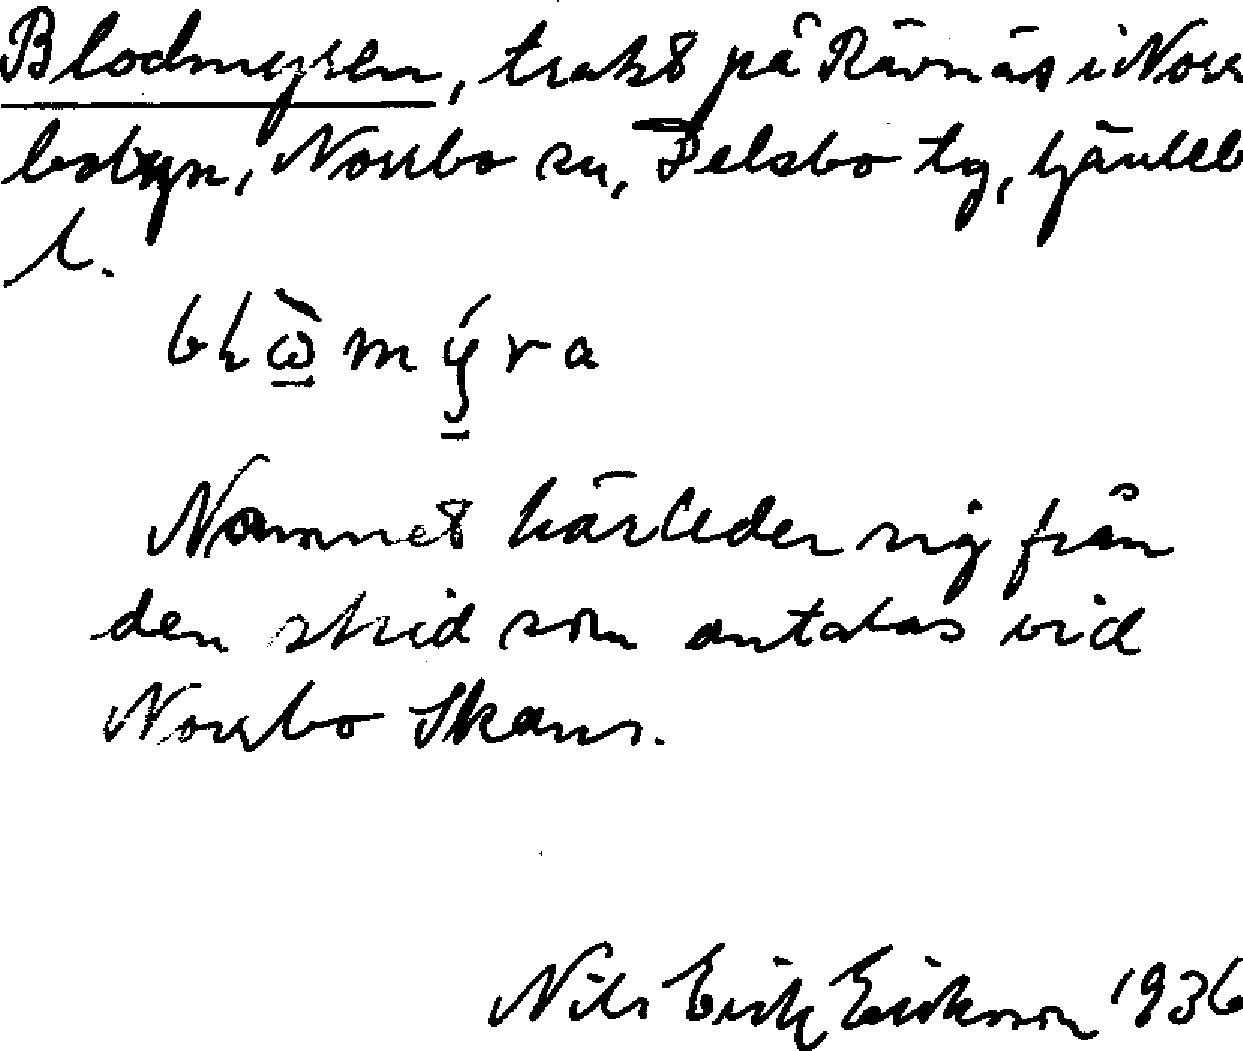 Blodmyren, trakt på Rävnäs i Norr
bobyn, Norrbo sn, Delsbo tg, Gävleb
l.
Namnet härleder sig från
den strid som antalas vid
Norrbo Skans.
Nils Erik Erikson 1936